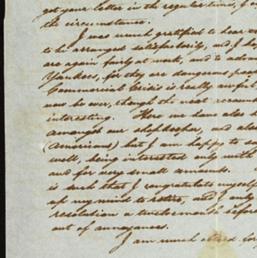 got your letter in the regular times, I
the circumstance.
I was much gratified to hear
to be arranged satisfactorily, and I ho
are again fairly at work, and to adva
Yankees, for they are dangerous peo
Commercial Crisis is really awful
now be over, though the next accoun
interesting. Here we have also h
amongst our shopkeepers, and also
(Americans) but I am happy to sa
well, being interested only with
and for very small amounts.
is such that I congratulate myself
up my mind to retire, and I only
resolution a twelvemonth before
out of annoyances.
I am much obliged for